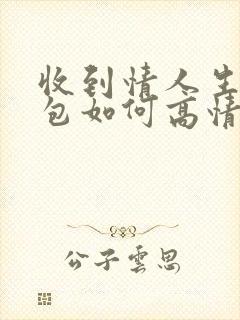 收到情人生
包如何高情
公子云思